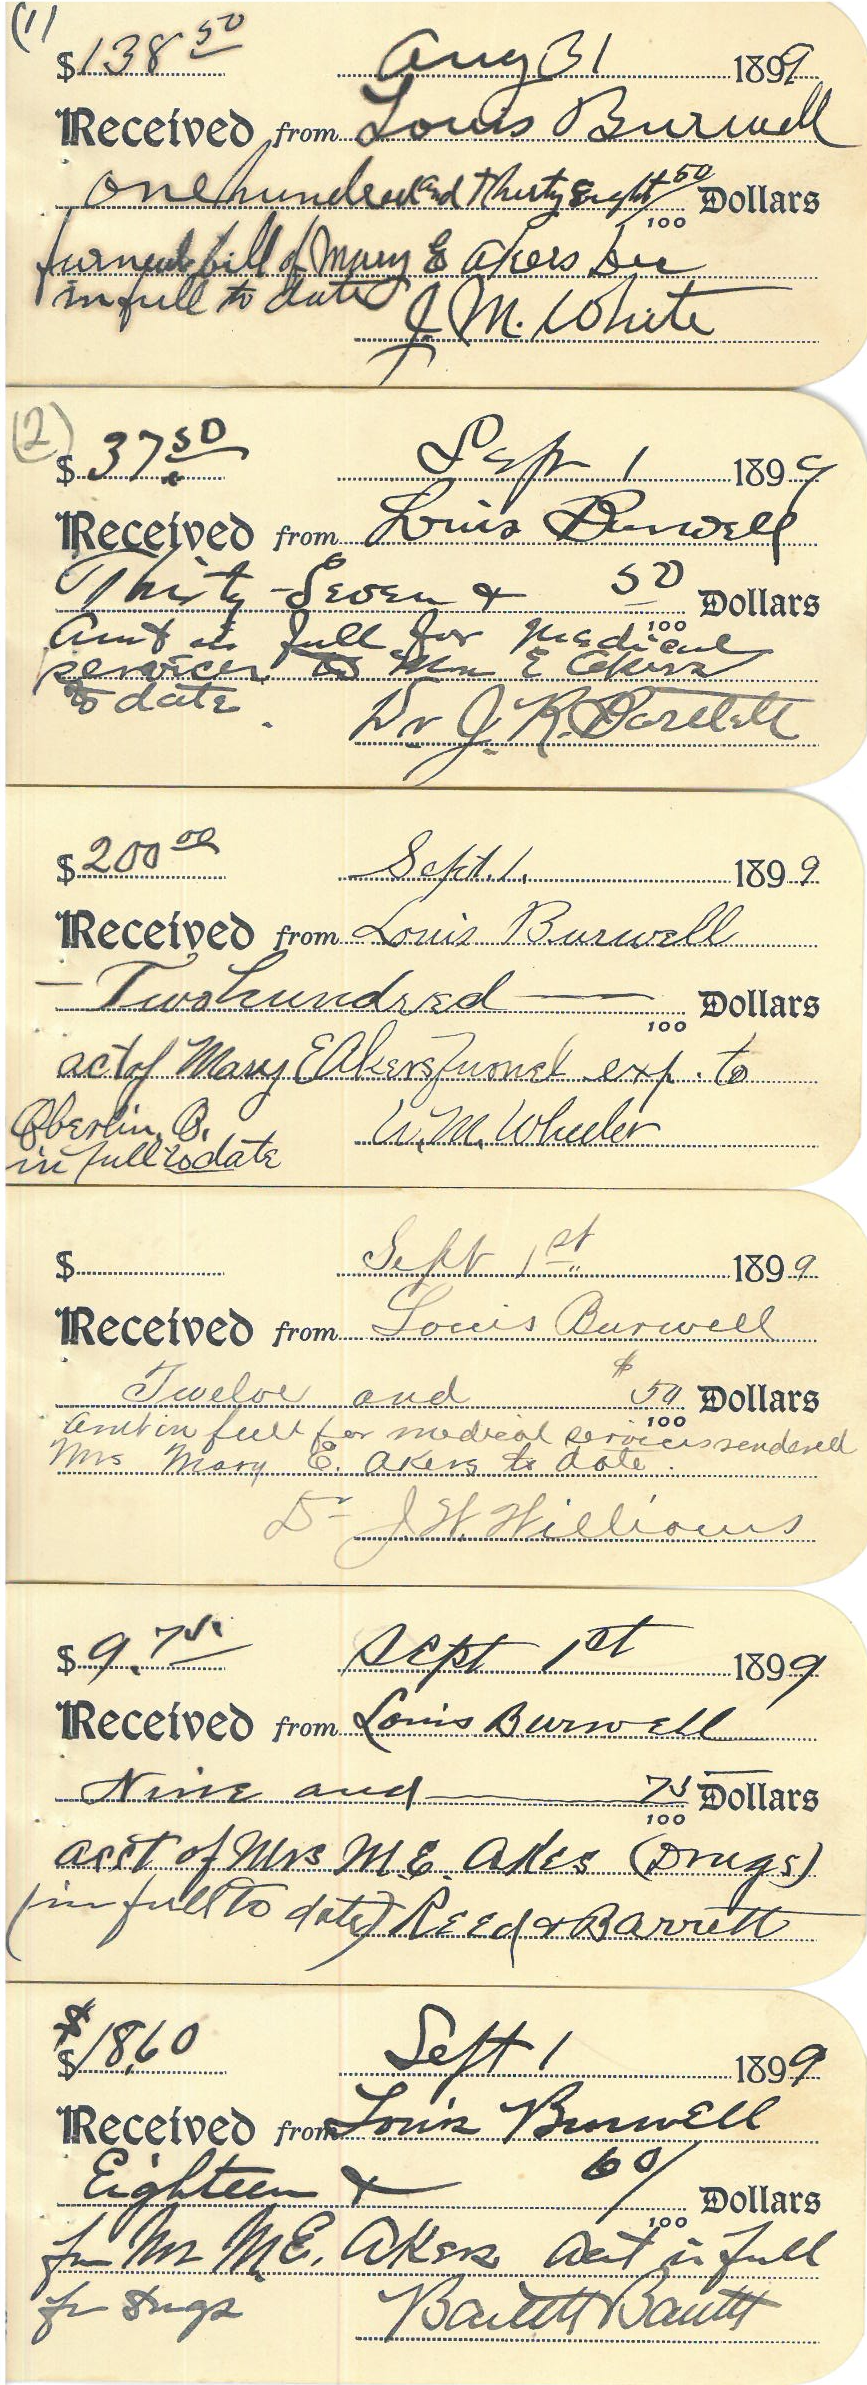 (1)
$138 50 Aug 31 1899
Received from Louis Burwell
One hundred and Thirty Eight 50/100 Dollars
bill of Mary E Akers Dec
in full to date J. M. White
(2)
$37 50 Sept 1 1899
Received from Louis Burwell
Thirty-Seven & 50/100 Dollars
Amt in full for Medical
services to Mrs E Akers
to date Dr J. R. Bartlett
$200 00 Sept. 1. 1899
Received from Louis Burwell
— Two hundred — /100 Dollars
act of Mary E Akers funeral exp. to
Oberlin, O. W. M. Wheeler
in full to date
$ Sept 1st 1899
Received from Louis Burwell
Twelve and $ 50/100 Dollars
Amt in full for medical services rendered
Mrs Mary E. Akers to date.
Dr J. W. Williams
$9.75 Sept 1st 1899
Received from Louis Burwell
Nine and — 75/100 Dollars
acct of Mrs M.E. Akes (Drugs)
(in full to date) Reed & Barrett
$ $18.60 Sept 1 1899
Received from Louis Burwell
Eighteen & 60/100 Dollars
for Mrs M.E. Akers act in full
for drugs